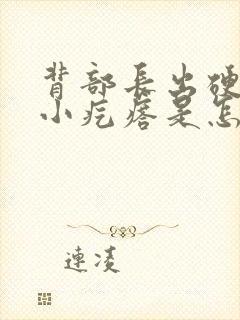 背部長出硬
小疙瘩是怎
連淩